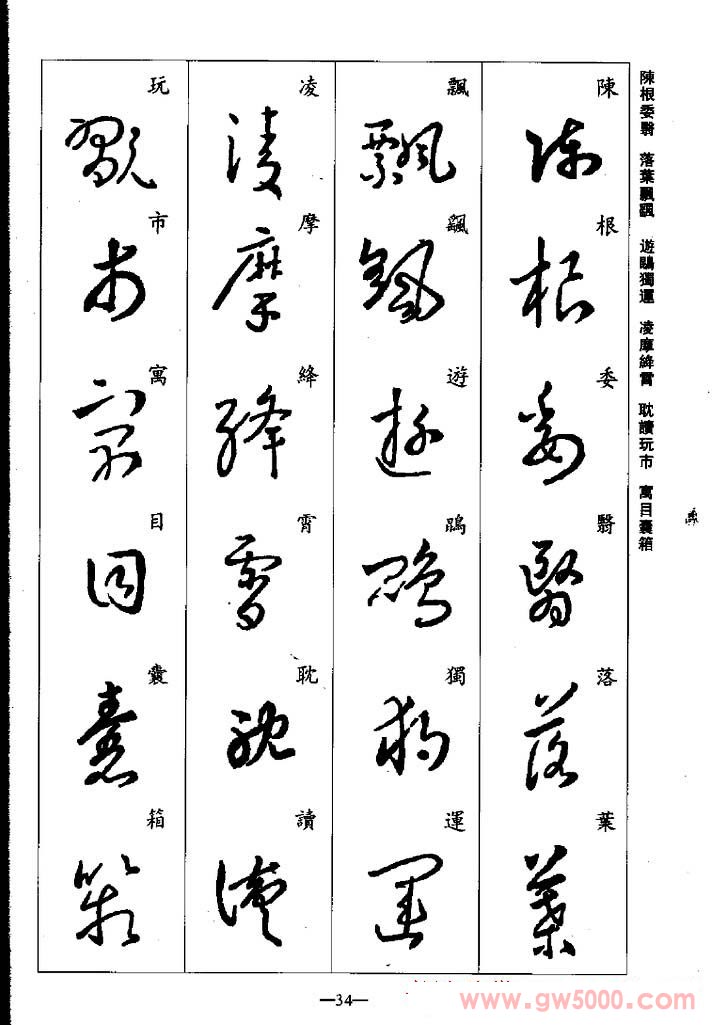 陳根委翳 落葉飄颻 遊鵾獨運 凌摩絳霄 耽讀玩市 寓目囊箱
陳
根
委
翳
落
葉
飄
颻
遊
鵾
獨
運
凌
摩
絳
霄
耽
讀
玩
市
寓
目
囊
箱
—34—
www.gw5000.com